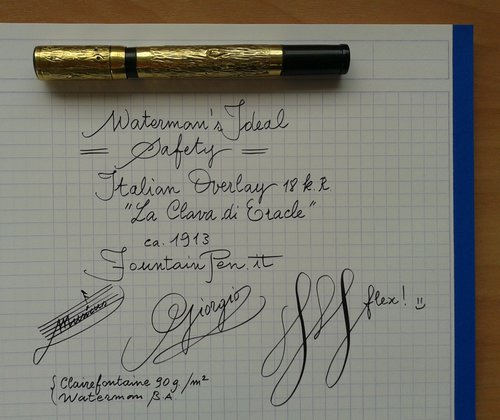 Waterman's Ideal
= Safety =
Italian Overlay 18 k.R.
"La Clava di Eracle"
ca. 1913
FountainPen.it
Musicus
Giorgio
flex! :)
{ Clairefontaine 90g/m²
Waterman B.A.